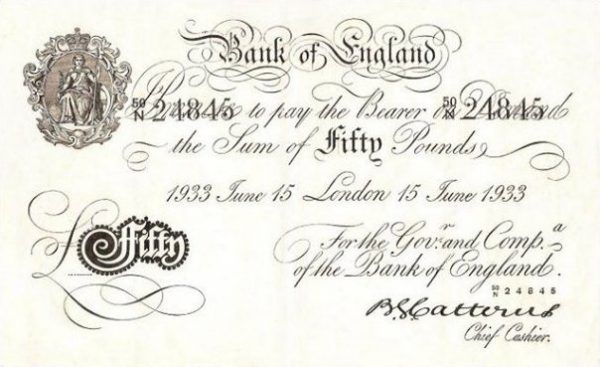 Bank of England
50/N 24845 I Promise to pay the Bearer on Demand 50/N 24845
the Sum of Fifty Pounds
1933 June 15 London 15 June 1933
£ Fifty
For the Gov.r and Comp.a
of the Bank of England.
50/N 24845
B.G. Catterns
Chief Cashier.